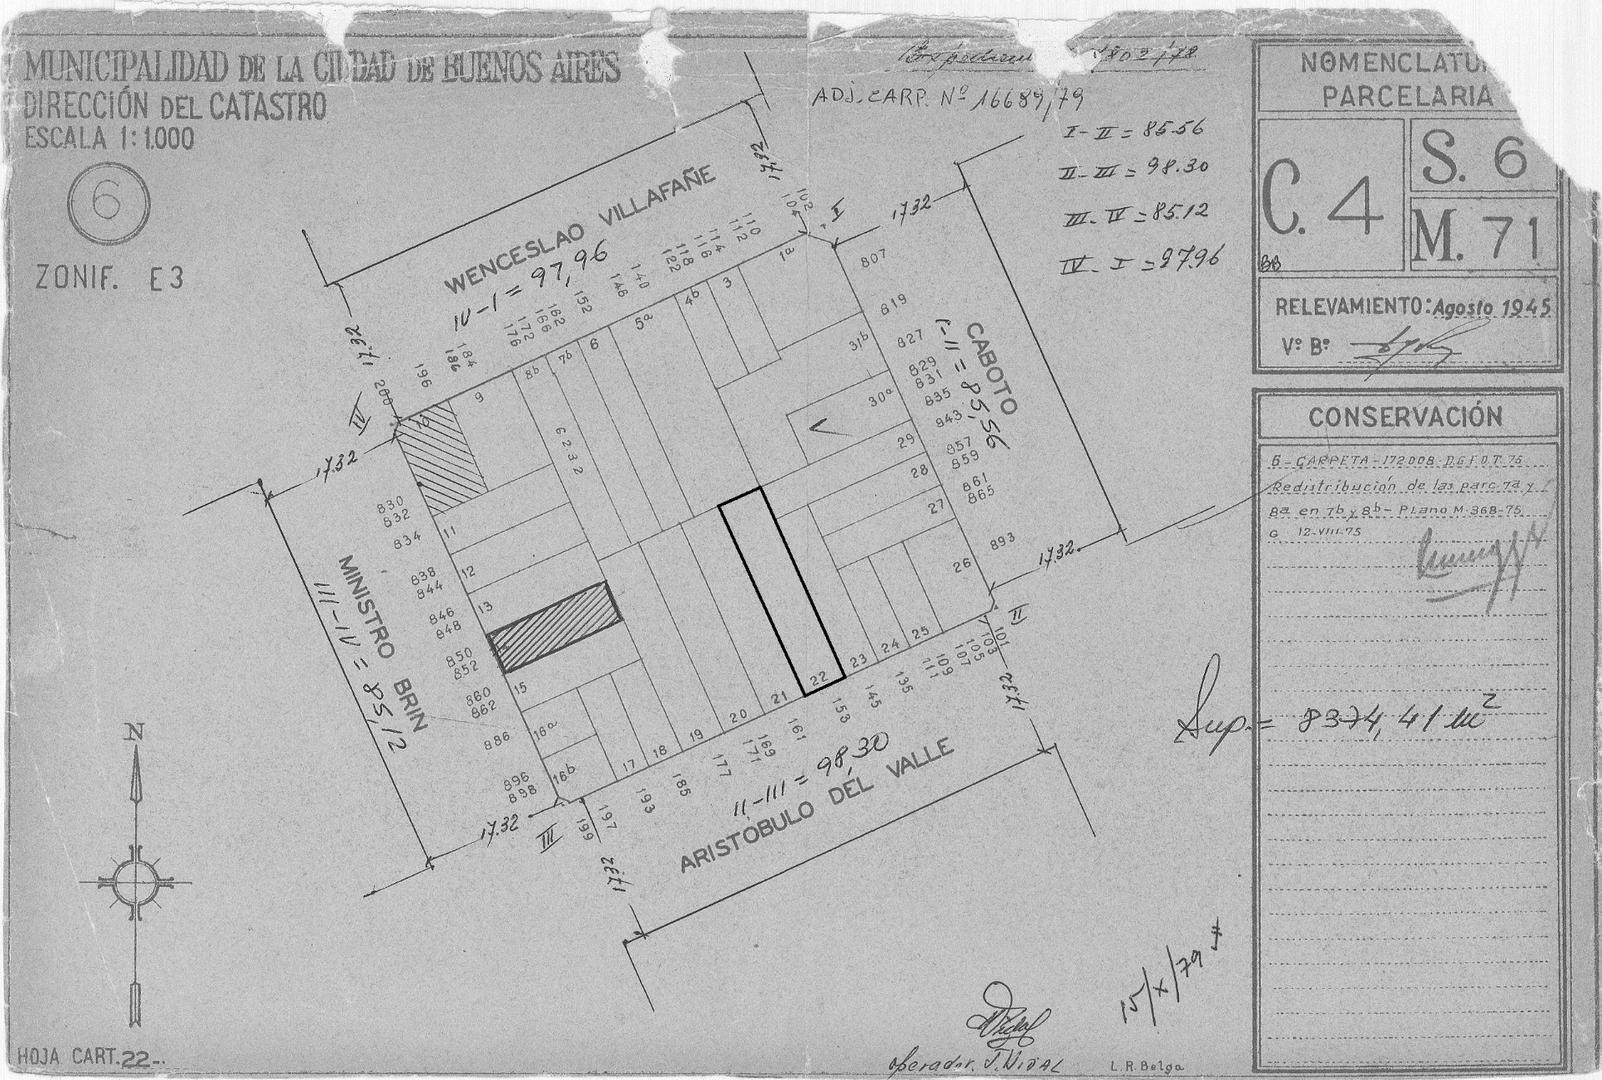 MUNICIPALIDAD DE LA CIUDAD DE BUENOS AIRES
DIRECCIÓN DEL CATASTRO
ESCALA 1:1.000
6
ZONIF. E3
ADJ. CARP. Nº 16689/79
I-II = 85.56
II-III = 98.30
III-IV = 85.12
IV-I = 97.96
NOMENCLATU
PARCELARIA
C. 4
S. 6
M. 71
RELEVAMIENTO: Agosto 1945
Vº Bº:
CONSERVACIÓN
6-CARPETA-172008-D.G.F.O.T.75
Redistribución de las parc. 7a y
8a en 7b y 8b- Plano M-368-75
G 12-VIII-75
Sup.= 8374,41 m²
WENCESLAO VILLAFAÑE
IV-I = 97,96
17,32
17.32
I
102
104
110
112
114
116
118
122
140
146
152
162
166
172
176
184
186
196
200
IV
17,32
17.32
1a
3
4b
5a
6
7b
8b
9
10
6232
CABOTO
I-II = 85,56
807
819
827
829
831
835
843
857
859
861
865
893
31b
30a
29
28
27
26
17.32
II
17,32
MINISTRO BRIN
III-IV = 85,12
830
832
834
838
844
846
848
850
852
860
862
886
896
898
11
12
13
15
16a
16b
17
18
19
20
21
22
23
24
25
17.32
III
17,32
ARISTÓBULO DEL VALLE
II-III = 98,30
101
103
105
107
109
111
135
145
153
161
169
171
177
185
193
197
199
N
15/X/79
operador. J. VIDAL
L.R.Belga
HOJA CART. 22-.